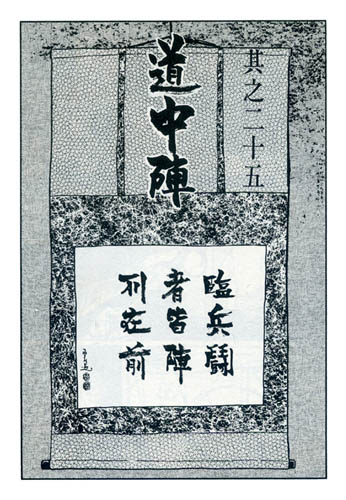 其之二十五
道中陣
臨兵闘
者皆陣
列在前